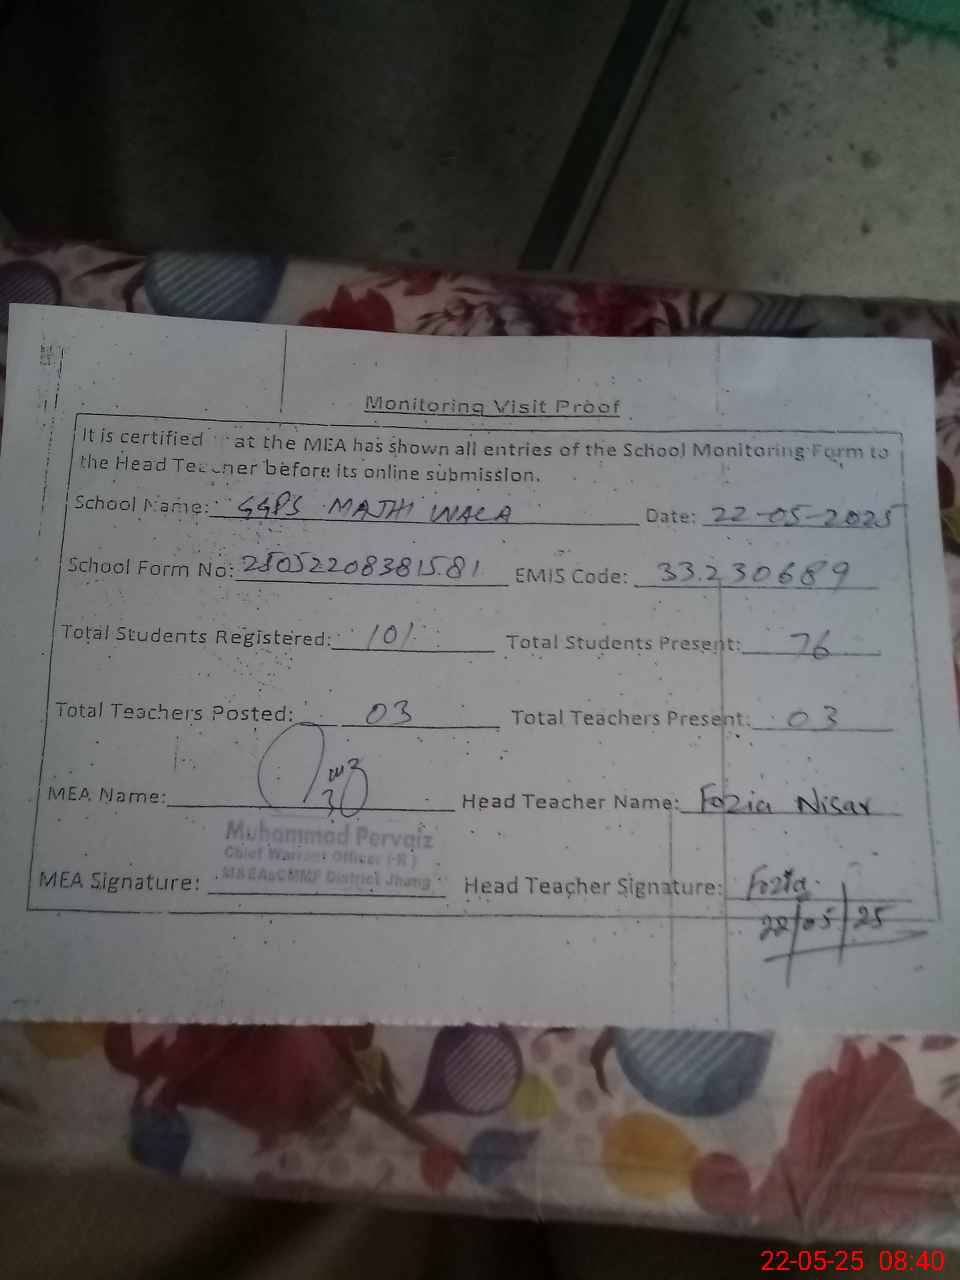 Monitoring Visit Proof
It is certified at the MEA has shown all entries of the School Monitoring Form to
the Head Teacher before its online submission.
School Name: GGPS MAJHI WALA Date: 22-05-2025
School Form No: 25052208381581 EMIS Code: 33230689
Total Students Registered: 101 Total Students Present: 76
Total Teachers Posted: 03 Total Teachers Present: 03
MEA Name: Head Teacher Name: Fozia Nisar
Muhammad Pervaiz
Chief Warrant Officer (R)
MEA Signature: District Jhang Head Teacher Signature: Fozia
22/05/25
22-05-25 08:40